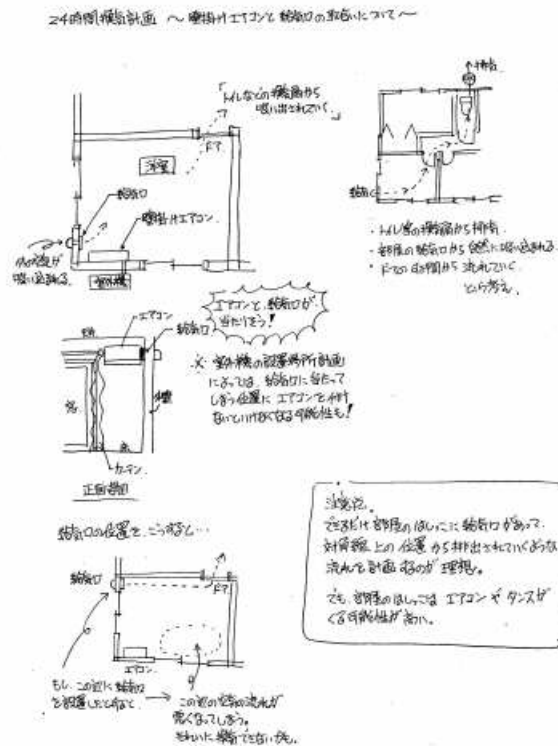 24時間換気計画 ～ 壁掛けエアコンと給気口の取合いについて～
「トイレなどの換気扇から
吸い出されていく」
ドア
洋室
給気口
壁掛けエアコン
外の空気が
吸い込まれる
室外機
排気
給気
・トイレ等の換気扇から排気
・部屋の給気口から自然に吸い込まれる
・ドアのすき間から流れていく
という考え。
エアコンと、給気口が、
当たりそう！
エアコン
給気口
※ 室外機の設置場所計画
によっては、給気口に当たって
しまう位置にエアコンを付け
ないといけなくなる可能性も！
窓
外壁
床
カーテン
正面図
給気口の位置を、こうすると…
給気口
ドア
エアコン
もし、この辺に給気口
を設置したとすると、
この辺の空気の流れが
悪くなってしまう。
きれいに換気できないかも。
注意点。
できるだけ部屋のはしっこに給気口があって、
対角線上の位置から排出されていくような
流れを計画するのが理想。
でも、部屋のはしっこはエアコンやタンスが
くる可能性が高い。